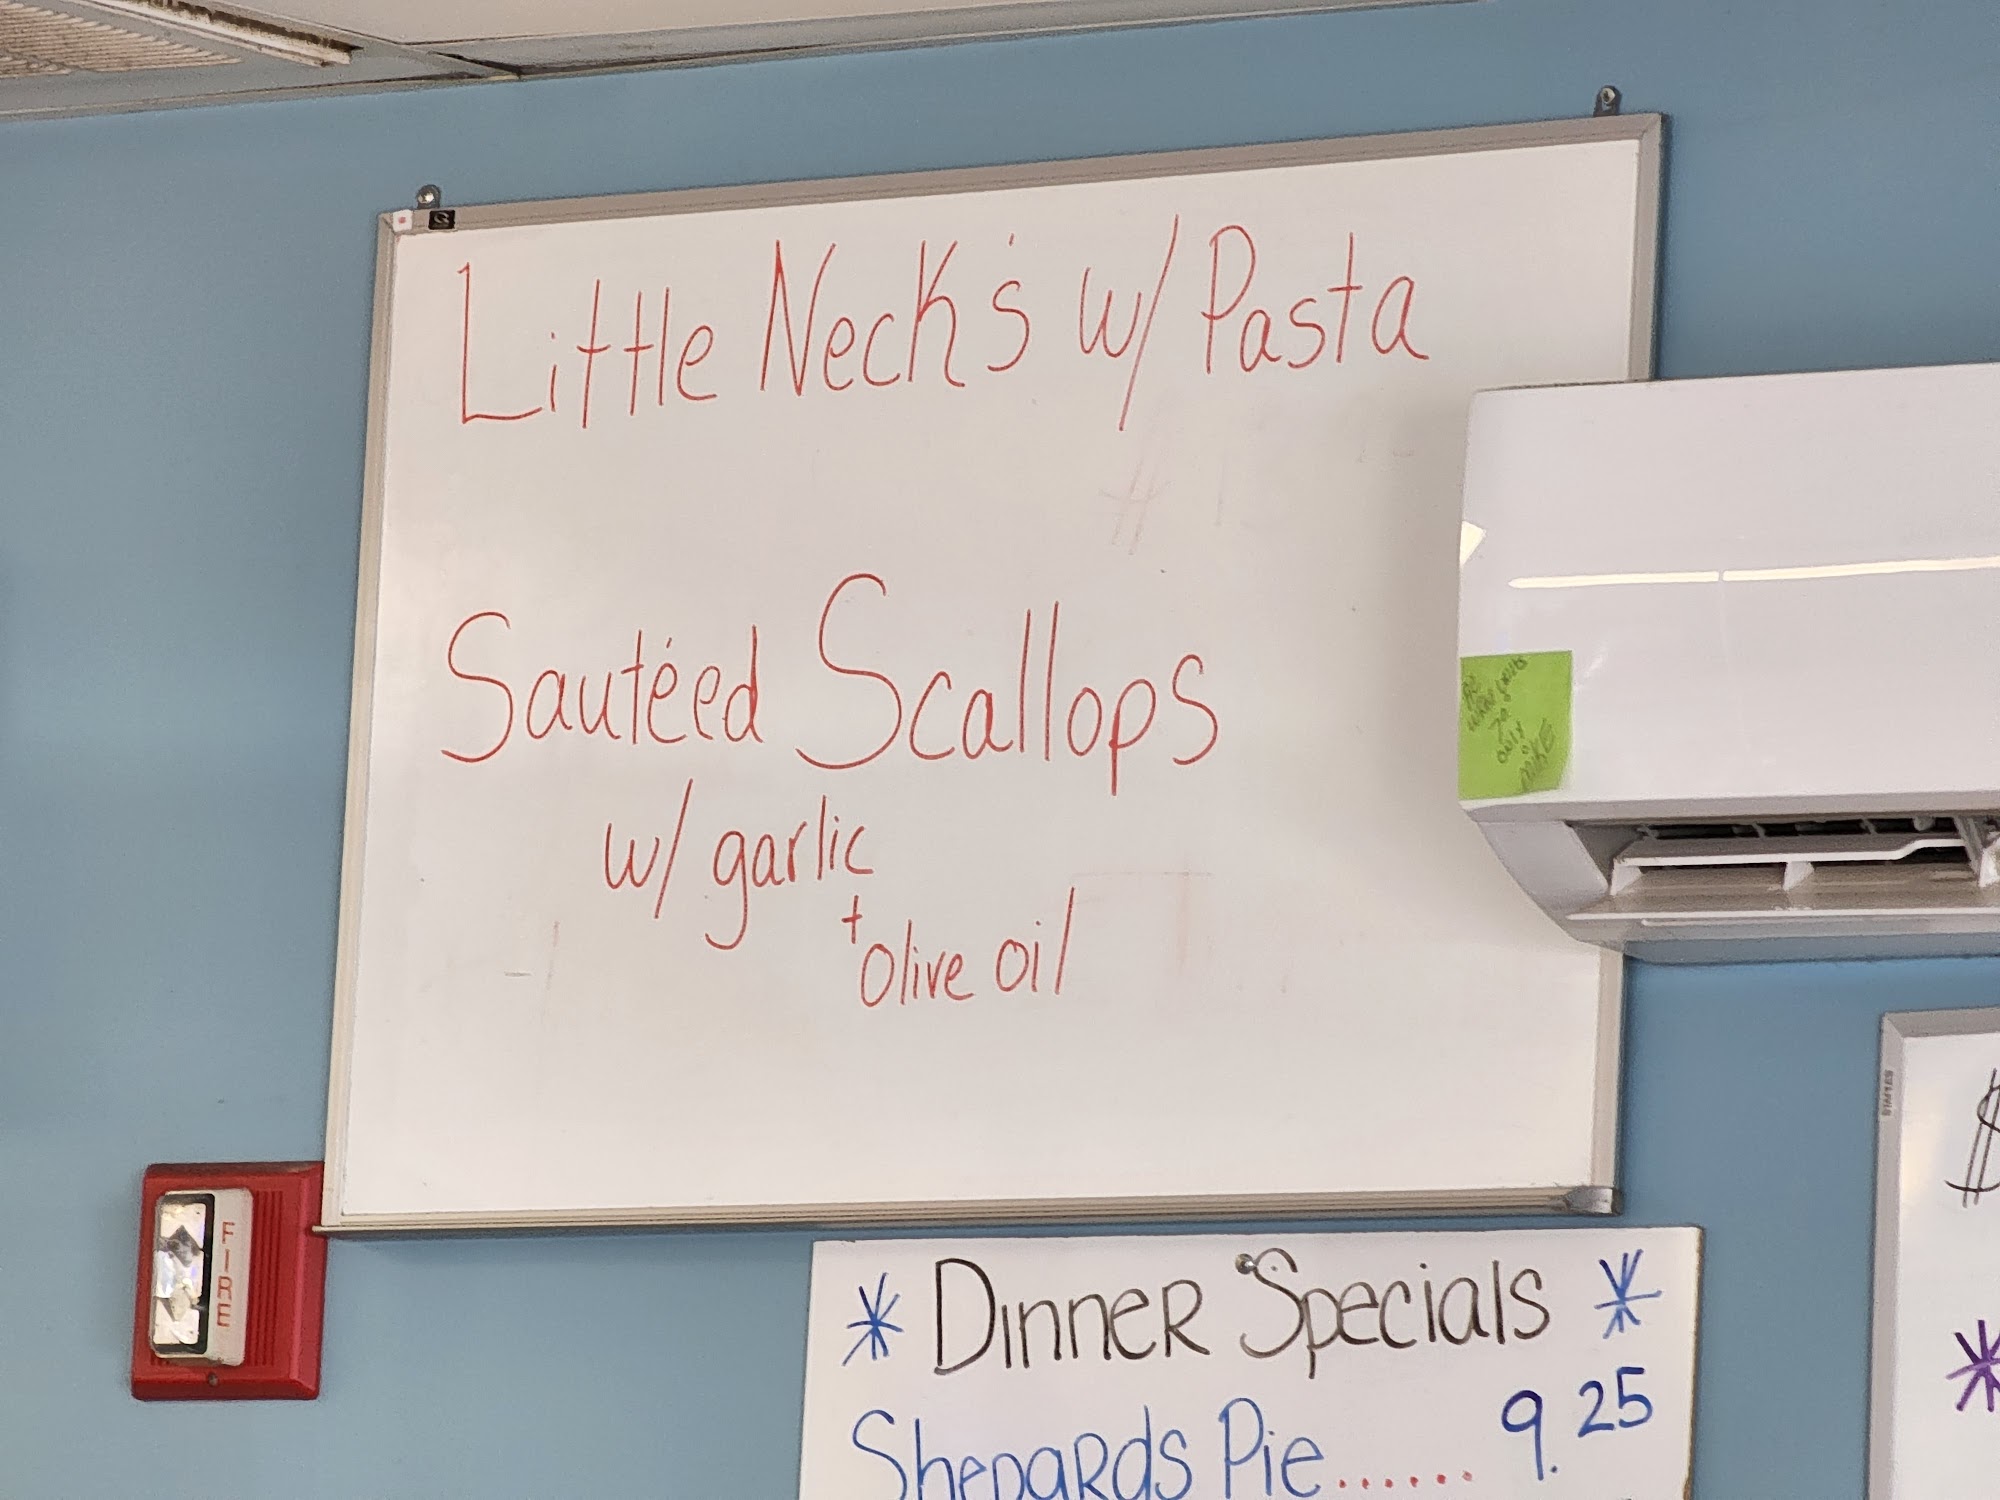 Little Neck's w/ Pasta
Sautéed Scallops
w/ garlic
+ olive oil
AC
70°
ONLY
MIKE
FIRE
* Dinner Specials *
Shepards Pie...... 9.25
$
*